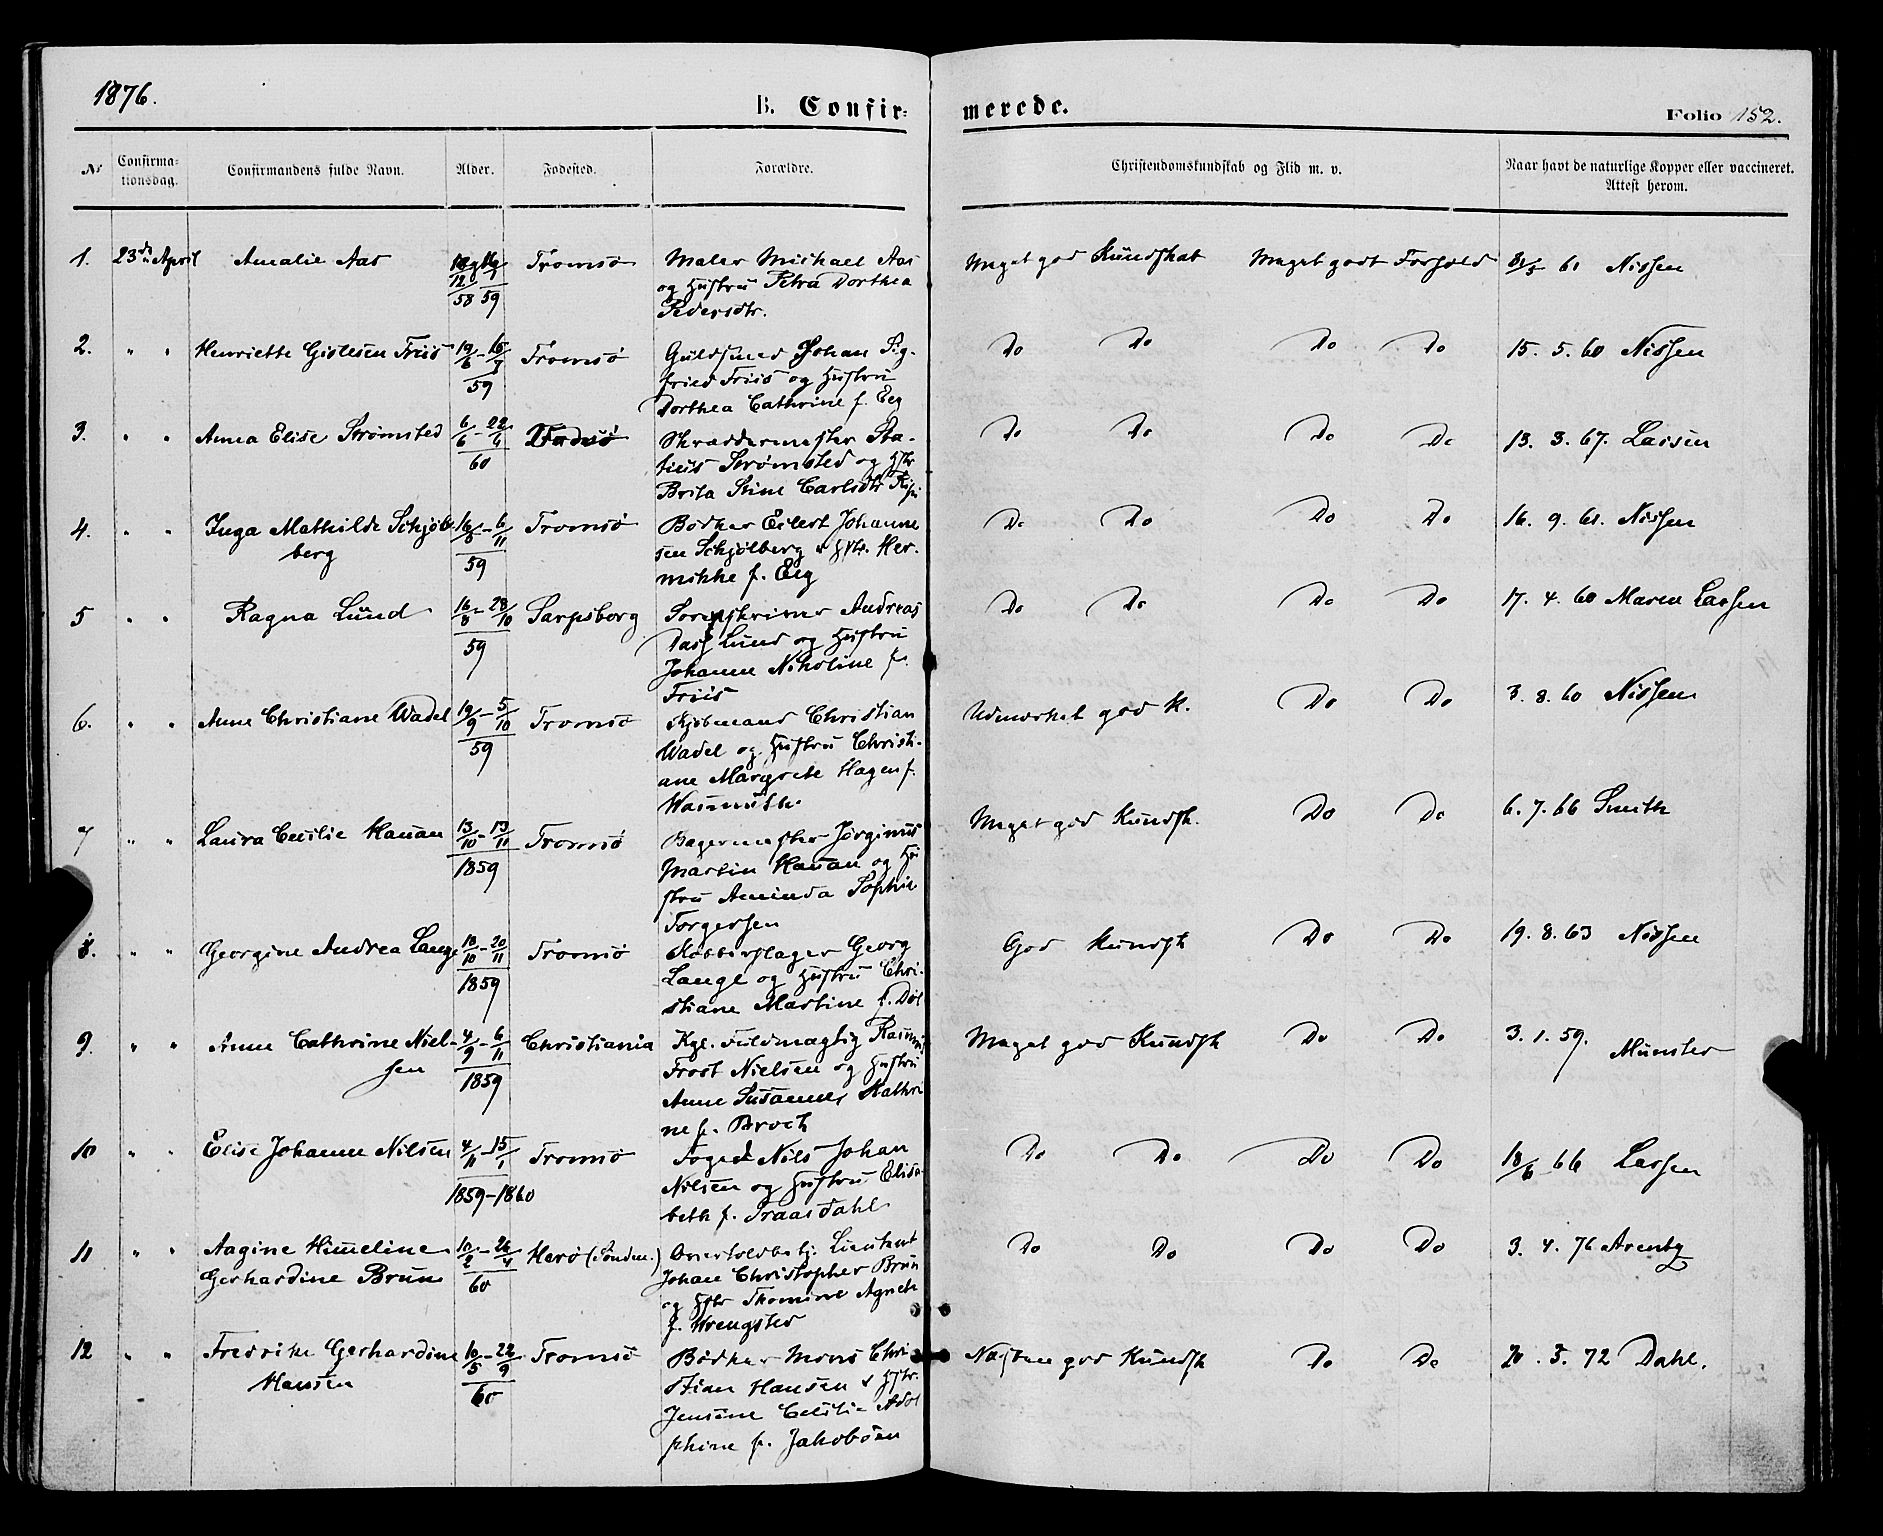 1876.
B. Confir=
merede.
Folio 152.
No
Confirma=
tionsdag.
Confirmandens fulde Navn.
Alder.
Fødested.
Forældre.
Christendomskundskab og Flid m. v.
Naar havt de naturlige Kopper eller vaccineret.
Attest herom.
1. 23de April Amalie Aas 12 58 59 Tromsø Maler Michael Aas Meget god Kundskab Meget godt Forhold 61 Nissen
og Hustru Petra Dorthea
Pedersdtr.
2. " " Henriette Gislesen Friis 19/6 - 16/7 59 Tromsø Guldsmed Johan Sig- Do Do Do Do 15. 5. 60 Nissen
fried Friis og Hustru
Dorthea Cathrine f. Eeg
3. " " Anna Elise Strømsted 6/6 - 22/6 60 Skræddermester Sta- Do Do Do Do 13. 3. 67. Lassen
tius Strømsted og Hstr
Brita Stine Carlsdtr
4. " " Inga Mathilde Schjøl- 16/8 - 6/11 59 Tromsø Bødker Eilert Johanne Do Do Do Do 16. 9. 61. Nissen
berg
sen Schjølberg & Hstr. Her-
mikke f. Eeg
5 " " Ragna Lund 16/8 - 28/10 59 Sarpsborg Sorenskriver Andreas Do Do Do Do 17. 4. 60 Maren Lassen
Dass Lund og Hustru
Johanne Nikoline f.
Friis
6. " " Anne Christiane Wadel 19/9 - 5/10 59 Tromsø Kjøbmand Christian Udmærket god K. Do Do 3. 8. 60 Nissen
Wadel og Hustru Christi-
ane Margrete Hagen f.
Wasmuth.
7 " " Laura Cecilie Hauan 13/10 - 13/11 1859 Tromsø Bagermester Jørginus Meget god Kundsk. Do Do 6. 7. 66 Smith
Martin Hauan og Hu
stru Aminda Sophie
Torgersen
8. " " Georgine Andrea Lange 18/10 - 20/11 1859 Tromsø Kobberslager Georg God Kundsk Do Do 19. 8. 63 Nissen
Lange og Hustru Chri-
stiane Martine f. Døl
9. " " Anne Cathrine Niel- 4/9 - 6/11 1859 Christiania Kgl. Fuldmægtig Rasmus Meget god Kundsk Do Do 3. 1. 59. Münster
sen
Frost Nielsen og Hustru
Anne Susanne Kathri
ne f. Broch
10 " " Elise Johanne Nilsen 4/11 - 15/1 1859 - 1860 Tromsø Foged Nils Johan Do Do Do Do 18/6 66 Lassen
Nilsen og Hustru Elisa-
beth f. Traasdahl
11 " " Aagine Himeline 10/2 - 26/4 60 Herø (Søndm.) Overtoldbetj. Lieutnant Do Do Do Do 3. 4. 76
Gerhardine Brun
Johan Christopher Brun
og Hstr Thomine Agnete
f. Wrengsted
12 " " Fredrike Gerhardine 10/5 - 22/9 60 Tromsø Bødker Mons Chri- Næsten god Kundsk Do Do 20. 3. 72 Dahl.
Hansen
stian Hansen & Hstr.
Jensine Cecilie Adol
phine f. Jakobsen